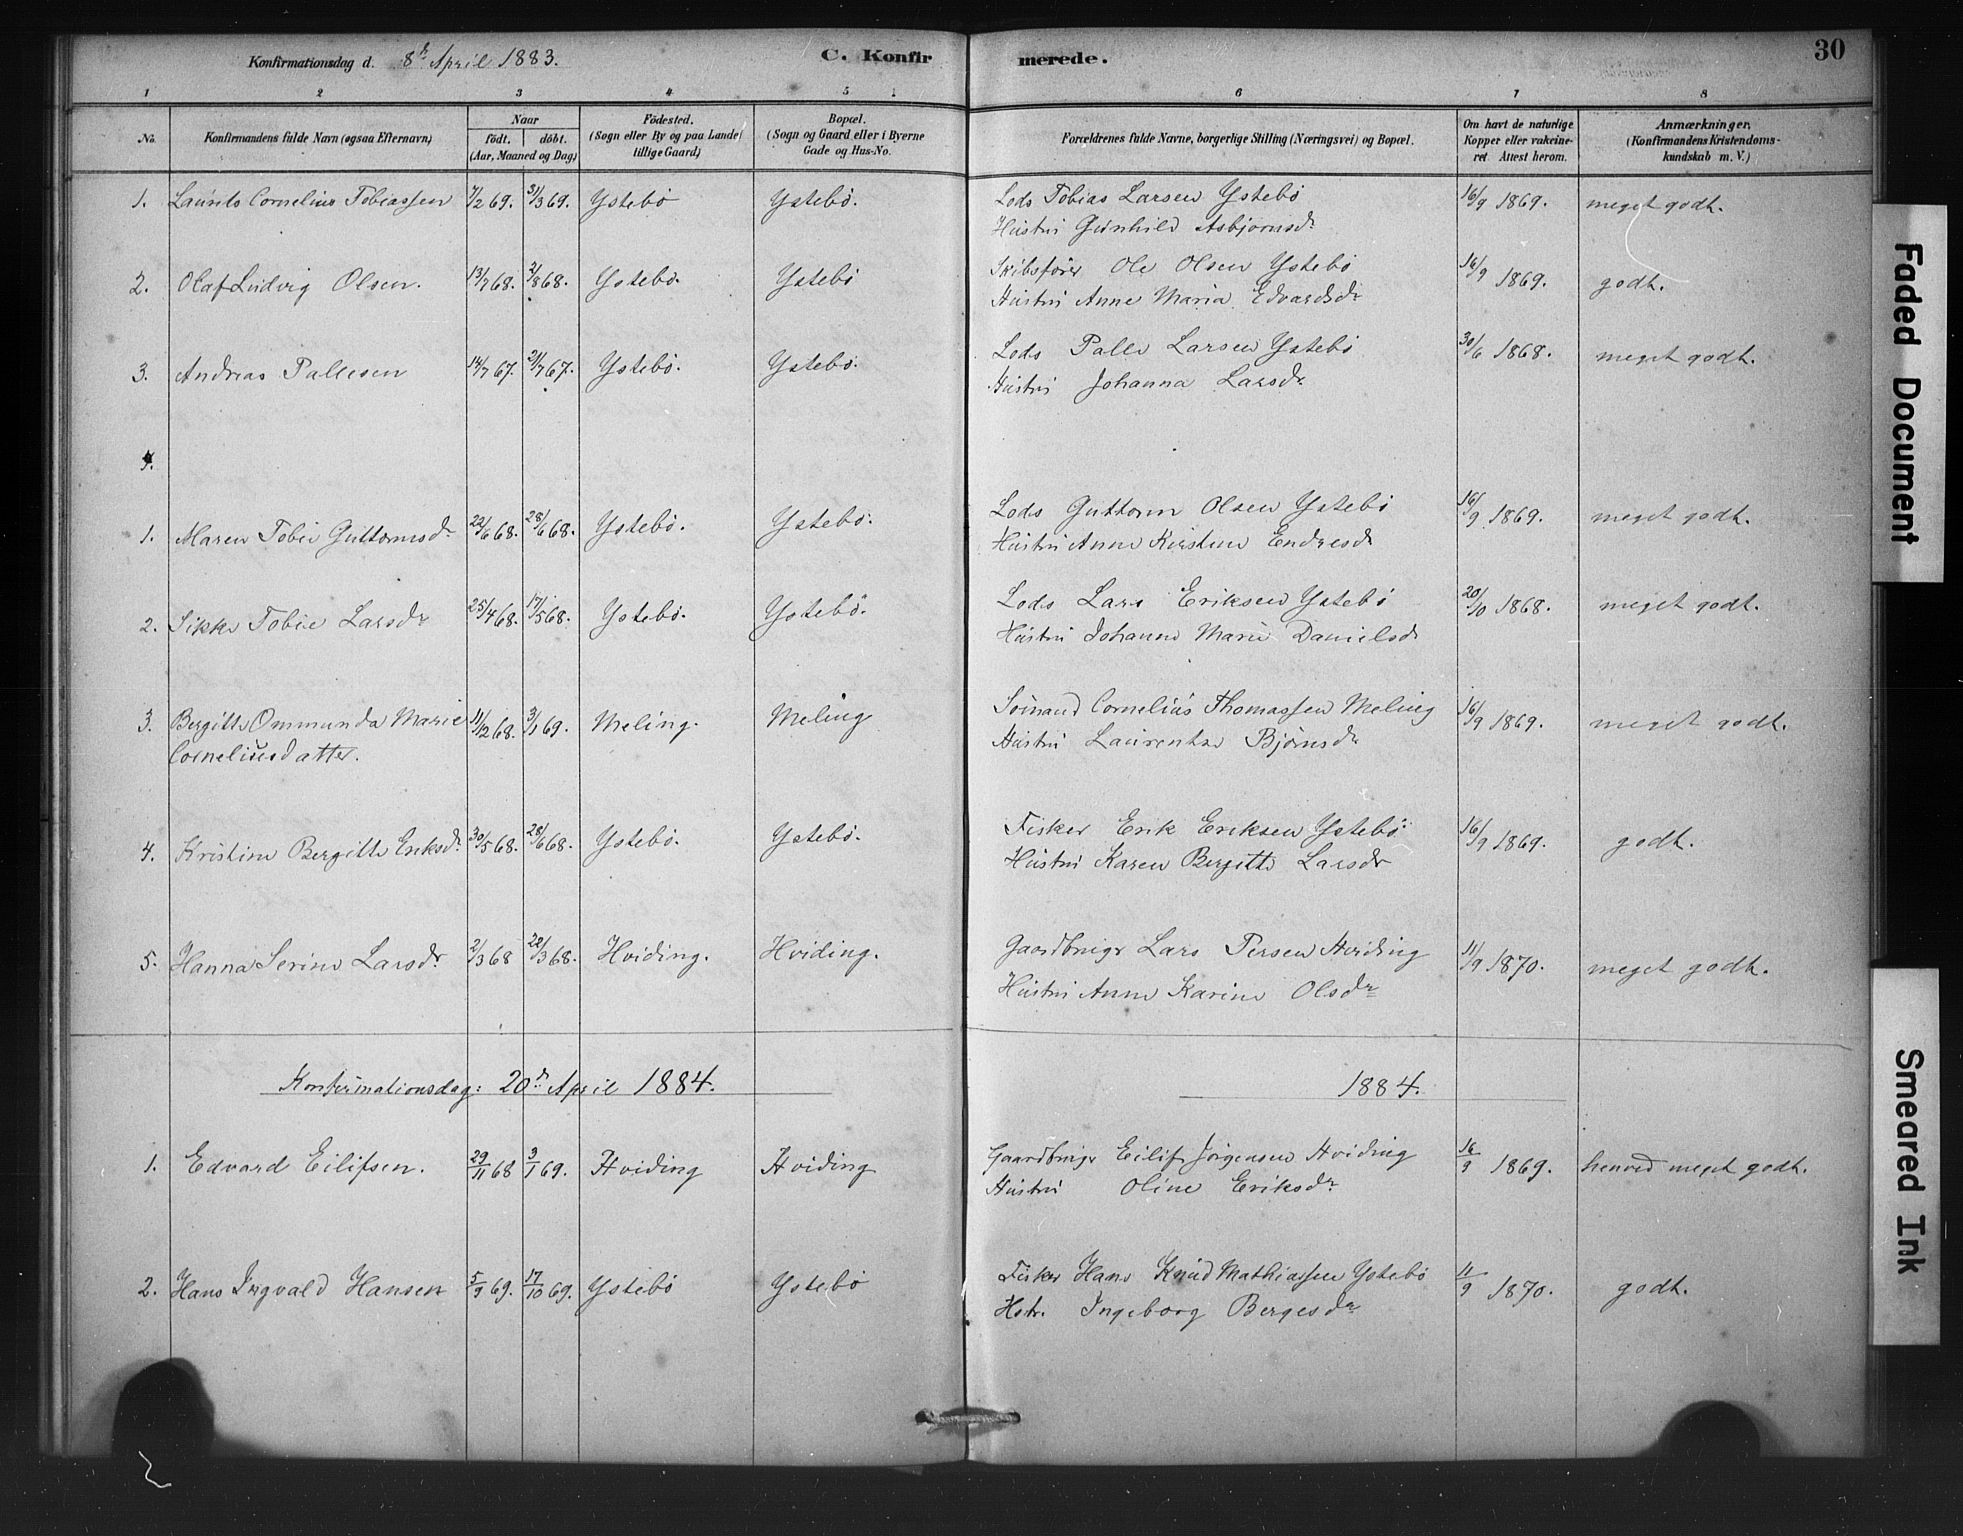 Konfirmationsdag d. 8de April 1883. C. Konfirmerede. 30
1 2 3 4 5 6 7 8
No. Konfirmandens fulde Navn (ogsaa Efternavn) Naar født. døbt. (Aar, Maaned og Dag) Fødested. (Sogn eller By og paa Landet tillige Gaard) Bopæl. (Sogn og Gaard eller i Byerne Gade og Hus-No. Forældrenes fulde Navne, borgerlige Stilling (Næringsvei) og Bopæl. Om havt de naturlige Kopper eller vakcineret Attest herom. Anmærkninger. (Konfirmandens Kristendomskundskab m. V.)
1. Laurits Cornelius Tobiassen 7/2 69. 31/3 69. Ystebø Ystebø. Lods Tobias Larsen Ystebø 16/9 1869. meget godt.
Hustru Gunhild Asbjørnsdr
2. Olaf Ludvig Olsen. 13/7 68. 2/8 68. Ystebø. Ystebø Skibsfører Ole Olsen Ystebø 16/9 1869. godt.
Hustru Anne Maria Edvardsdr
3. Andreas Pallesen 14/7 67. 21/7 67. Ystebø. Ystebø. Lods Palle Larsen Ystebø 30/6 1868. meget godt.
Hustru Johanna Larsdr
4.
1. Maren Tobie Guttormsdr 22/6 68. 28/6 68. Ystebø. Ystebø. Lods Guttorm Olsen Ystebø 16/9 1869. meget godt.
Hustru Anne Kirstine Endresdr
2. Sikke Tobie Larsdr 25/4 68. 17/5 68. Ystebø. Ystebø. Lods Lars Eriksen Ystebø 20/10 1868. meget godt.
Hustru Johanne Marie Danielsdr
3. Bergitte Ommunda Marie 11/12 68. 3/1 69. Meling. Meling Sømand Cornelius Thomassen Meling 16/9 1869. meget godt.
Corneliusdatter. Hustru Laurentze Bjørnsdr
4. Kristine Bergitte Eriksdr 30/5 68. 28/6 68. Ystebø. Ystebø. Fisker Erik Eriksen Ystebø 16/9 1869. godt.
Hustru Karen Bergitte Larsdr
5. Hanna Serine Larsdr 2/3 68 22/3 68. Hviding. Hviding. Gaardbruger Lars Persen Hviding 11/9 1870. meget godt.
Hustru Anne Karine Olsdr
Konfirmationsdag: 20de April 1884. 1884.
1. Edvard Eilifsen. 29/11 68 3/1 69. Hviding Hviding Gaardbruger Eilif Jørgensen Hviding 16/9 1869. henved meget godt.
Hustru Oline Eriksdr
2. Hans Ingvald Hansen 5/9 69. 17/10 69. Ystebø Ystebø Fisker Hans Knud Mathiassen Ystebø 11/9 1870. godt.
Hstr. Ingeborg Bergesdr
Faded Document
Smeared Ink